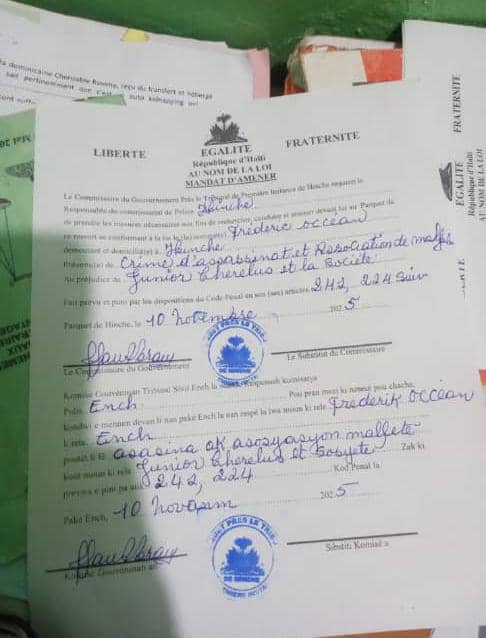 la dominicaine Cherisable Rosema, reçu du transfert et héberge
sait pertinemment que c'est auto kidnapping qui
LIBERTE EGALITE FRATERNITE
République d'Haïti
AU NOM DE LA LOI
MANDAT D'AMENER
Le Commissaire du Gouvernement Près le Tribunal de Première Instance de Hinche requiert le
Responsable du commissariat de Police Hinche
de prendre les mesures nécessaires aux fins de rechercher, conduire et amener devant lui au Parquet de
en se conformant à la loi le (la) nommé(e) Frederic occean
demeurant et domicilié(e) à Hinche
Prévenu(e) de Crime d'assassinat et Association de malf
Au préjudice de Junior Cherelus et la Société
Fait prévu et puni par les dispositions du Code Pénal en son (ses) articles 242, 224 Suiv
Parquet de Hinche, le 10 Novembre 2025
Le Commissaire du Gouvernement
Le Substitut du Commissaire
Komisè Gouvènman Tribinal Sivil Ench la
Polis Ench Pou pran mezi ki nesesè pou chache,
kondui e mennen devan li nan pakè Ench la nan respè la lwa moun ki rele Frederik occean
ki rete Ench
asasina ak asosyasyon malfetè
kont moun ki rele Junior Cherelus et Sosyete Zak ki
prevwa e pini pa 242, 224 Kod Penal la
Pakè Ench, 10 Novanm 2025
Komisè Gouvènman an
Substiti Komisè a
DE HINCHE
LIBERTE
FRATERNITE
République d'Haïti